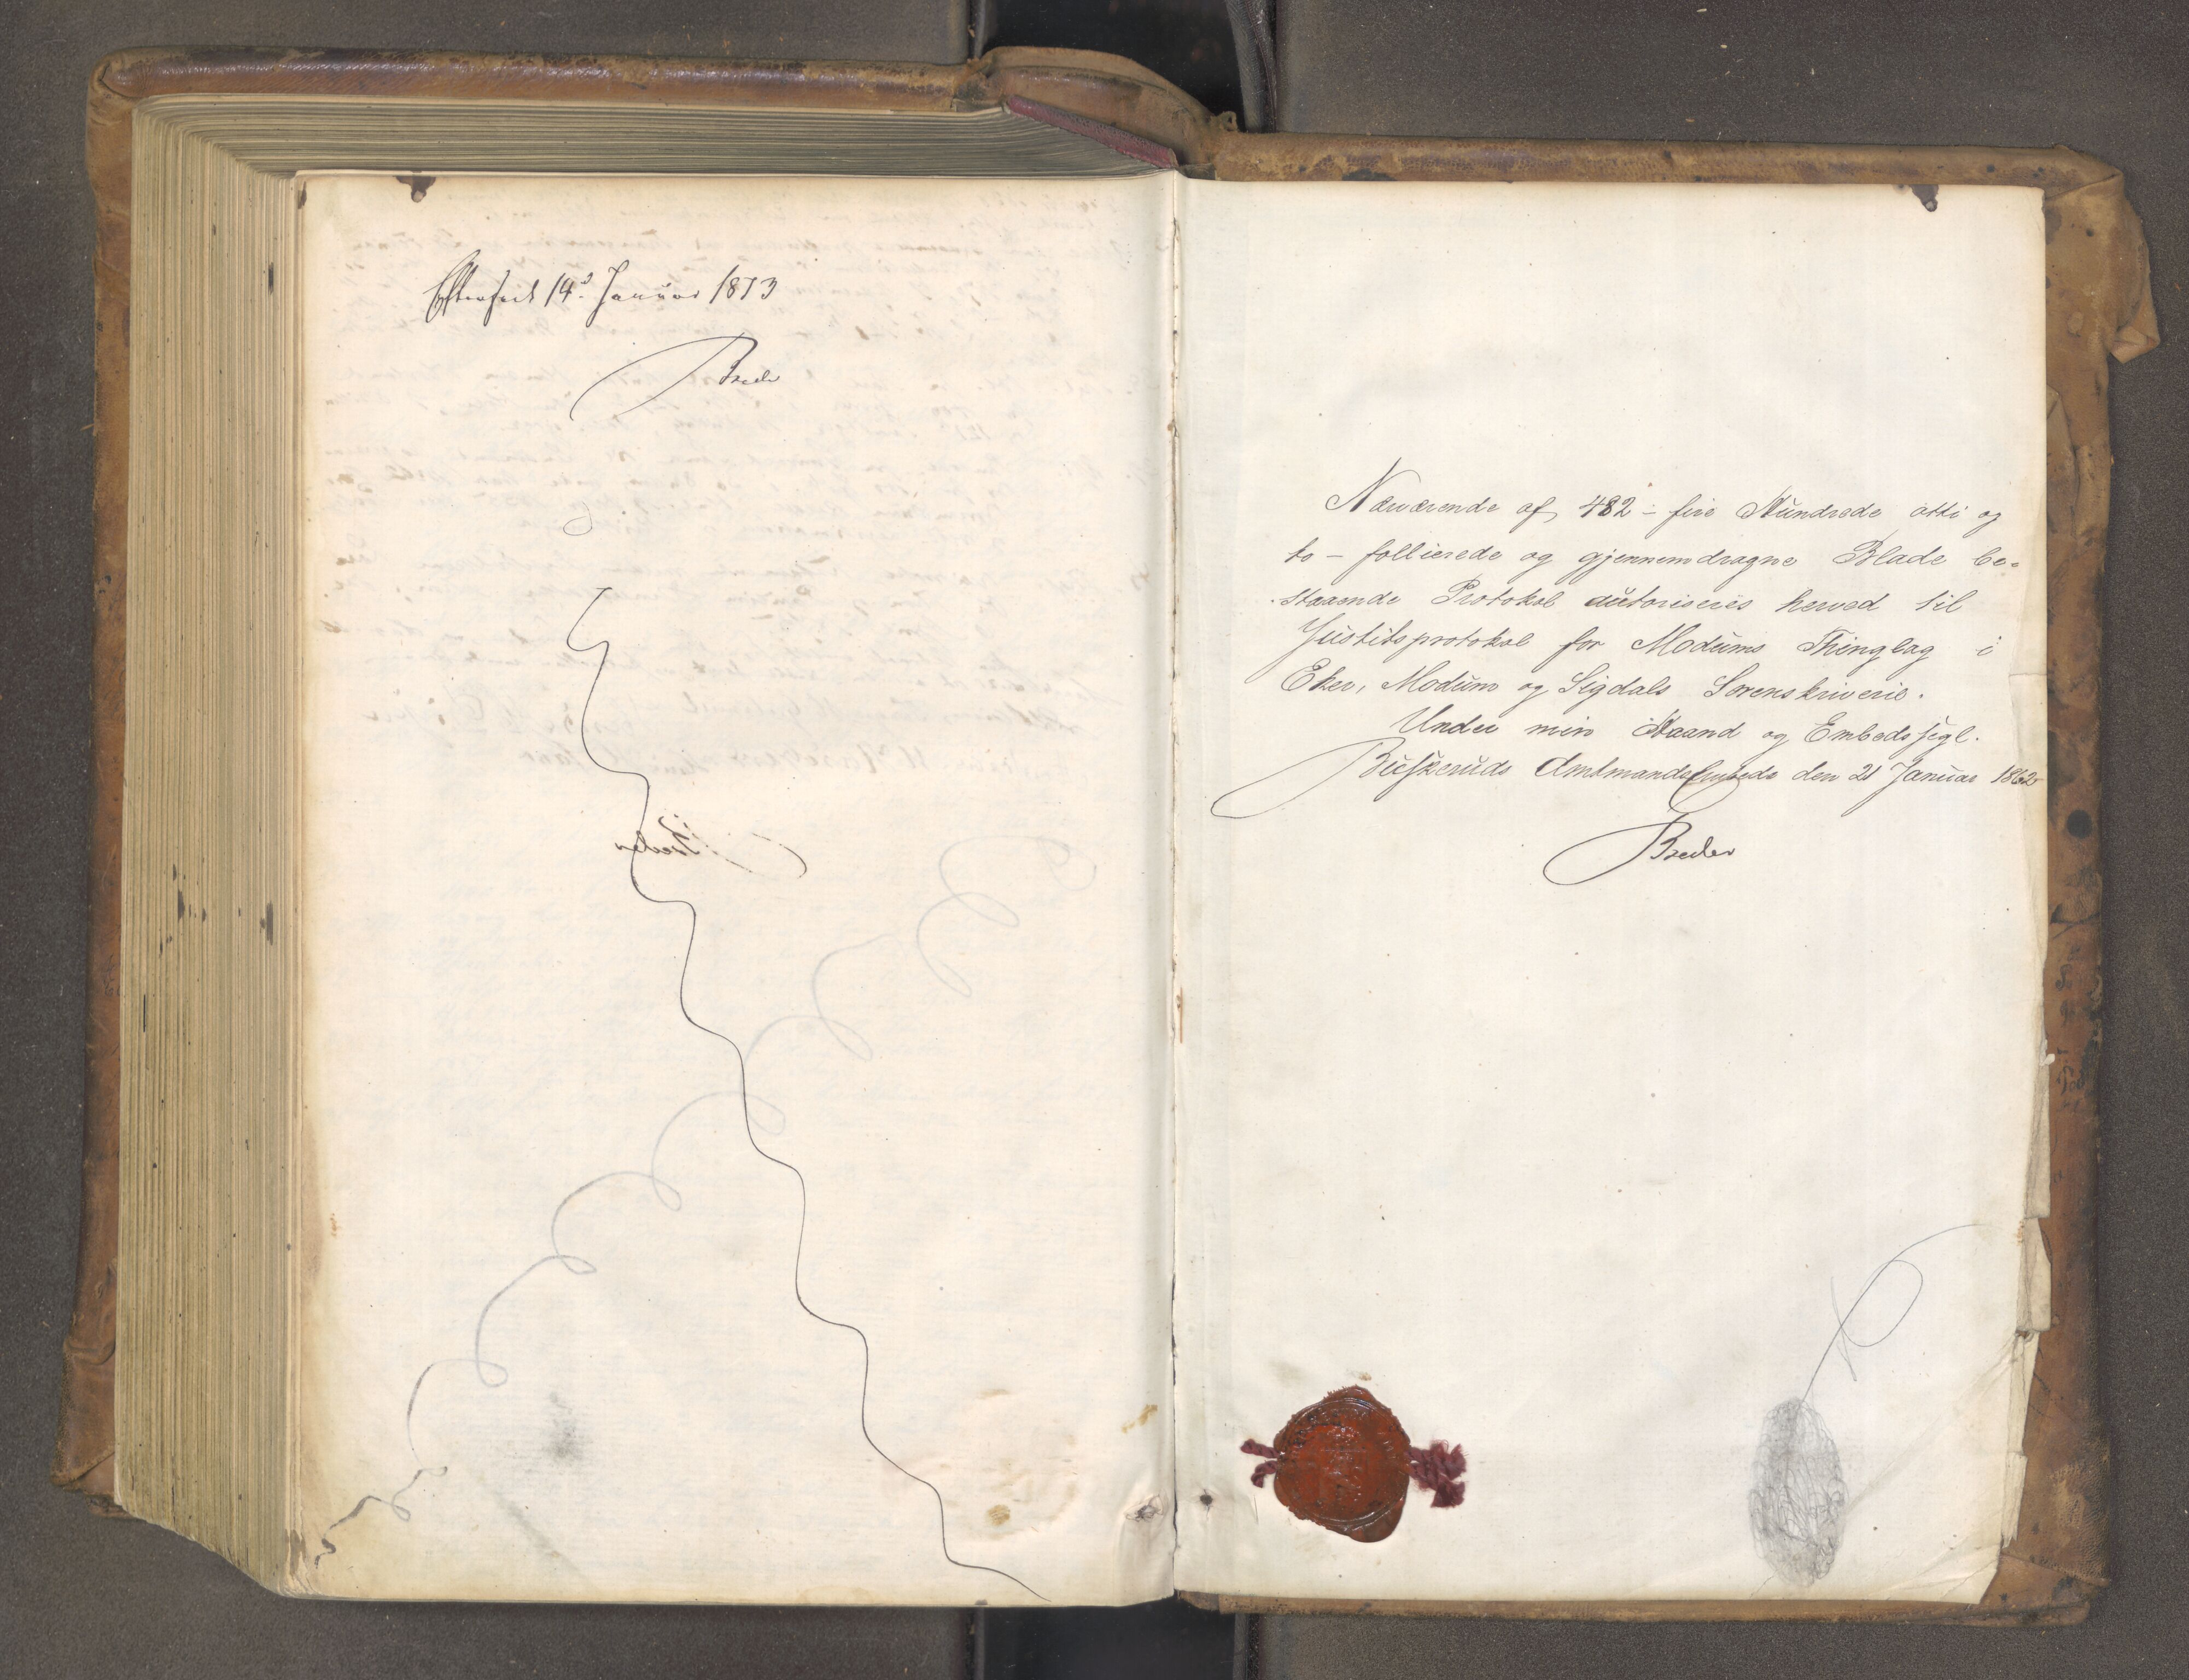 Efterseet 14de Januar 1873
Breder
Nærværende af 482 - fire Hundrede otti og
to - follierede og gjennemdragne Blade be-
staaende Protokol autoriseres herved til
Justitsprotokol for Modums Thinglag i
Eker, Modum og Sigdals Sorenskriverie.
Under min Haand og Embedssegl.
Buskeruds Amtmandsembede den 21 Januar 1862
Breder